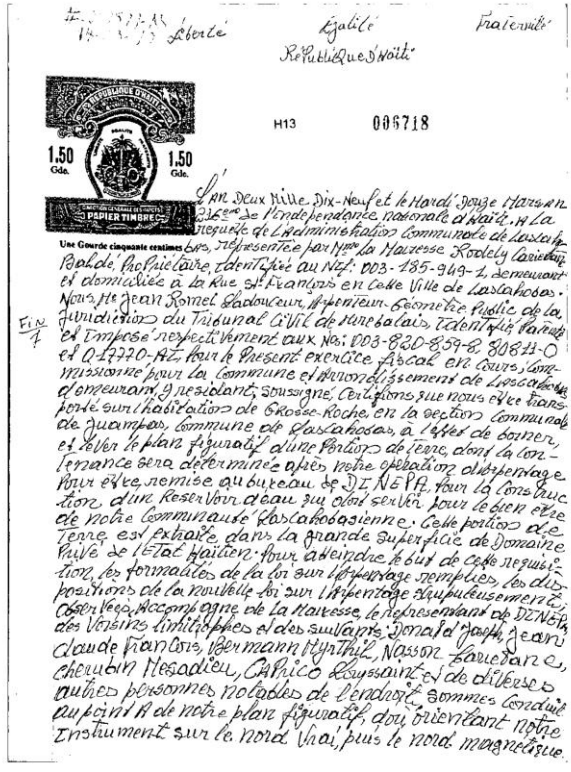 Liberté Égalité Fraternité
République D'Haïti
REPUBLIQUE D'HAITI
H13 006718
1.50 Gde. 1.50 Gde.
DIRECTION GENERALE DES IMPOTS
PAPIER TIMBRE
Une Gourde cinquante centimes
L'An Deux Mille Dix-Neuf et le Mardi Douze Mars An
216ème de l'independance nationale d'Haïti. A La
requête de L'Administration Communale de Lascaho-
bas, représentée par Mme La Mairesse Rodely
Baldé, Propriétaire, identifiée au Nif: 003-185-949-1, demeurant
et domiciliée à La Rue St François en cette Ville de Lascahobas.
Nous, Me Jean Romel Ladouceur, Arpenteur-Géomètre Public de la
Juridiction du Tribunal Civil de Mirebalais, identifié, Patenté
et Imposé respectivement aux Nos: 003-820-859-8, 80811-0
et Q-17720-AZ, pour le Present exercice fiscal en cours, Com-
missionné pour la Commune et Arrondissement de Lascahobas
demeurant, y residant, soussigné, Certifions que nous être trans-
porté sur l'habitation de Grosse-Roche, en la section Communale
de Juampas, Commune de Lascahobas, à l'effet de borner,
et lever le plan figuratif d'une Portion de terre, dont la Con-
tenance sera determinée après notre operation d'arpentage
Pour être remise au bureau de DINEPA, Pour la Construc
tion d'un Reservoir d'eau qui doit servir pour le bien être
de notre Communauté Lascahobasienne. Cette portion de
Terre, est extraite dans la grande superficie de Domaine
Privé de l'Etat Haïtien. Pour atteindre le but de cette requisi-
tion, les formalités de la loi sur l'Arpentage remplies, les dis-
positions de la nouvelle loi sur l'Arpentage scrupuleusement
observées, Accompagné de La Mairesse, le représentant de DINEPA,
des Voisins limitrophes et des suivants, Donald Joseph, Jean
claude François, Bermann Myrthil, Nasson
cherubin Mesadieu, CAPrico Loussaint et de diverses
autres personnes notables de l'endroit, sommes Conduit
au point A de notre plan figuratif, d'où orientant notre
Instrument sur le nord Vrai, puis le nord magnetique.
Fin